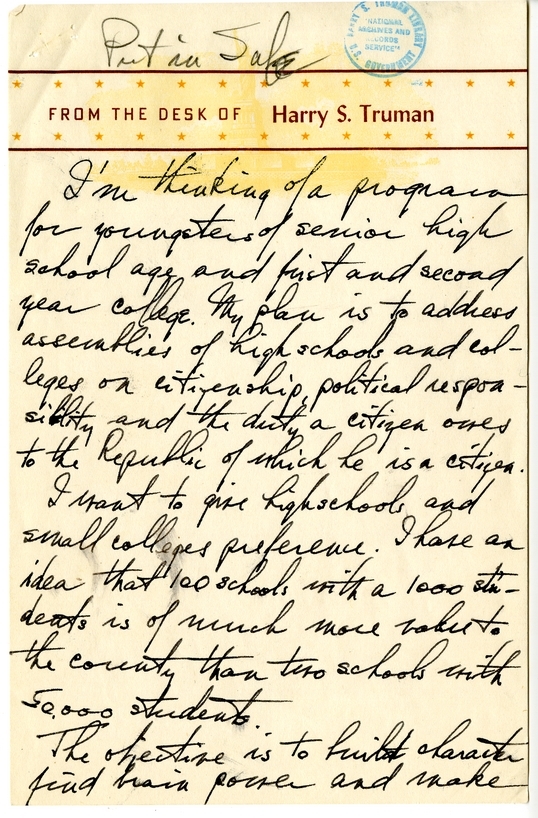 Put in Safe
HARRY S. TRUMAN LIBRARY
"NATIONAL
ARCHIVES AND
RECORDS
SERVICE"
U.S. GOVERNMENT
FROM THE DESK OF Harry S. Truman
I'm thinking of a program
for youngsters of senior high
school age and first and second
year college. My plan is to address
assemblies of high schools and col-
leges on citizenship, political respon-
sibility and the duty a citizen owes
to the Republic of which he is a citizen.
I want to give highschools and
small colleges preference. I have an
idea that 100 schools with a 1000 stu-
dents is of much more value to
the county than two schools with
50,000 students.
The objective is to build character
find brain power and make